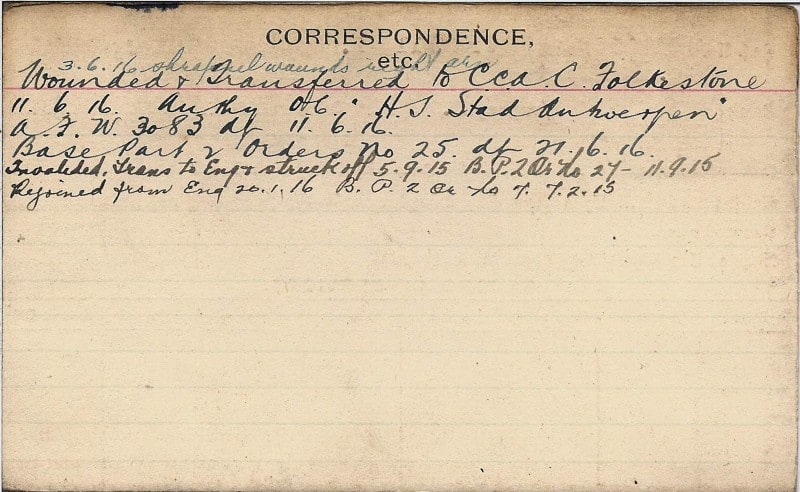 CORRESPONDENCE,
etc.
3.6.16 shrapnel wounds right arm
Wounded & Transferred to C.C.A.C. Folkestone
11. 6. 16. Authy O.C. "H.S. Stad Antwerpen"
A.F.W. 3083 df 11.6.16.
Base Part 2 Orders No 25. df 21.6.16.
Invalided, Trans to Eng & struck off 5.9.15 B.P.2 Or No 27- 11.9.15
Rejoined from Eng 20.1.16 B. P. 2 Or No 7. 7.2.15